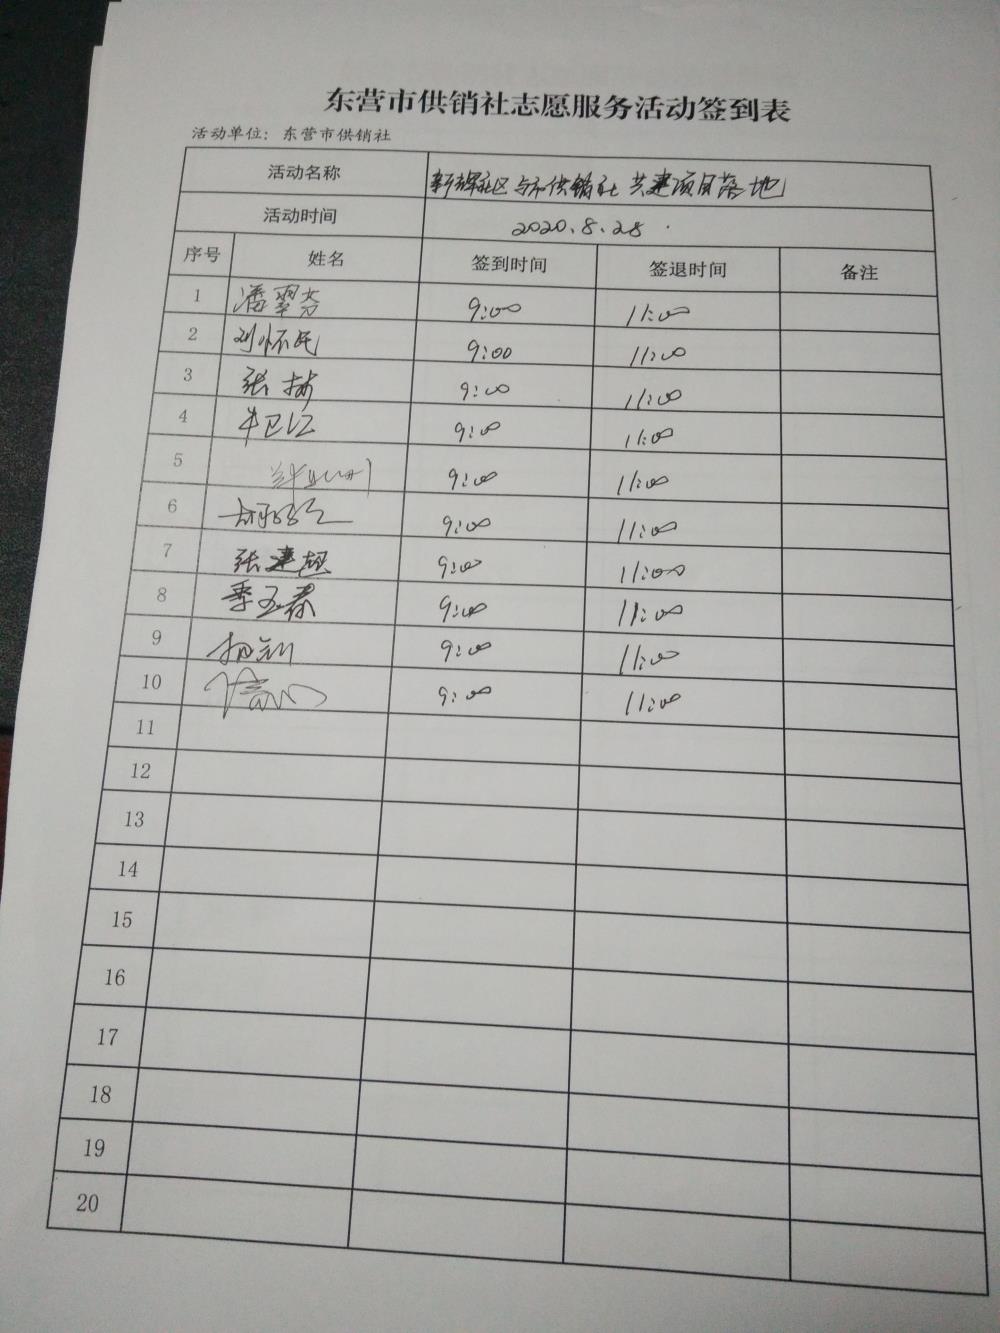 东营市供销社志愿服务活动签到表
活动单位：东营市供销社
活动名称 新辉社区与市供销社共建项目落地
活动时间 2020.8.28
序号 姓名 签到时间 签退时间 备注
1 潘翠芬 9:00 11:00
2 刘怀民 9:00 11:00
3 张 9:00 11:00
4 牛卫江 9:00 11:00
5 9:00 11:00
6 9:00 11:00
7 张建超 9:00 11:00
8 季玉春 9:00 11:00
9 9:00 11:00
10 9:00 11:00
11
12
13
14
15
16
17
18
19
20